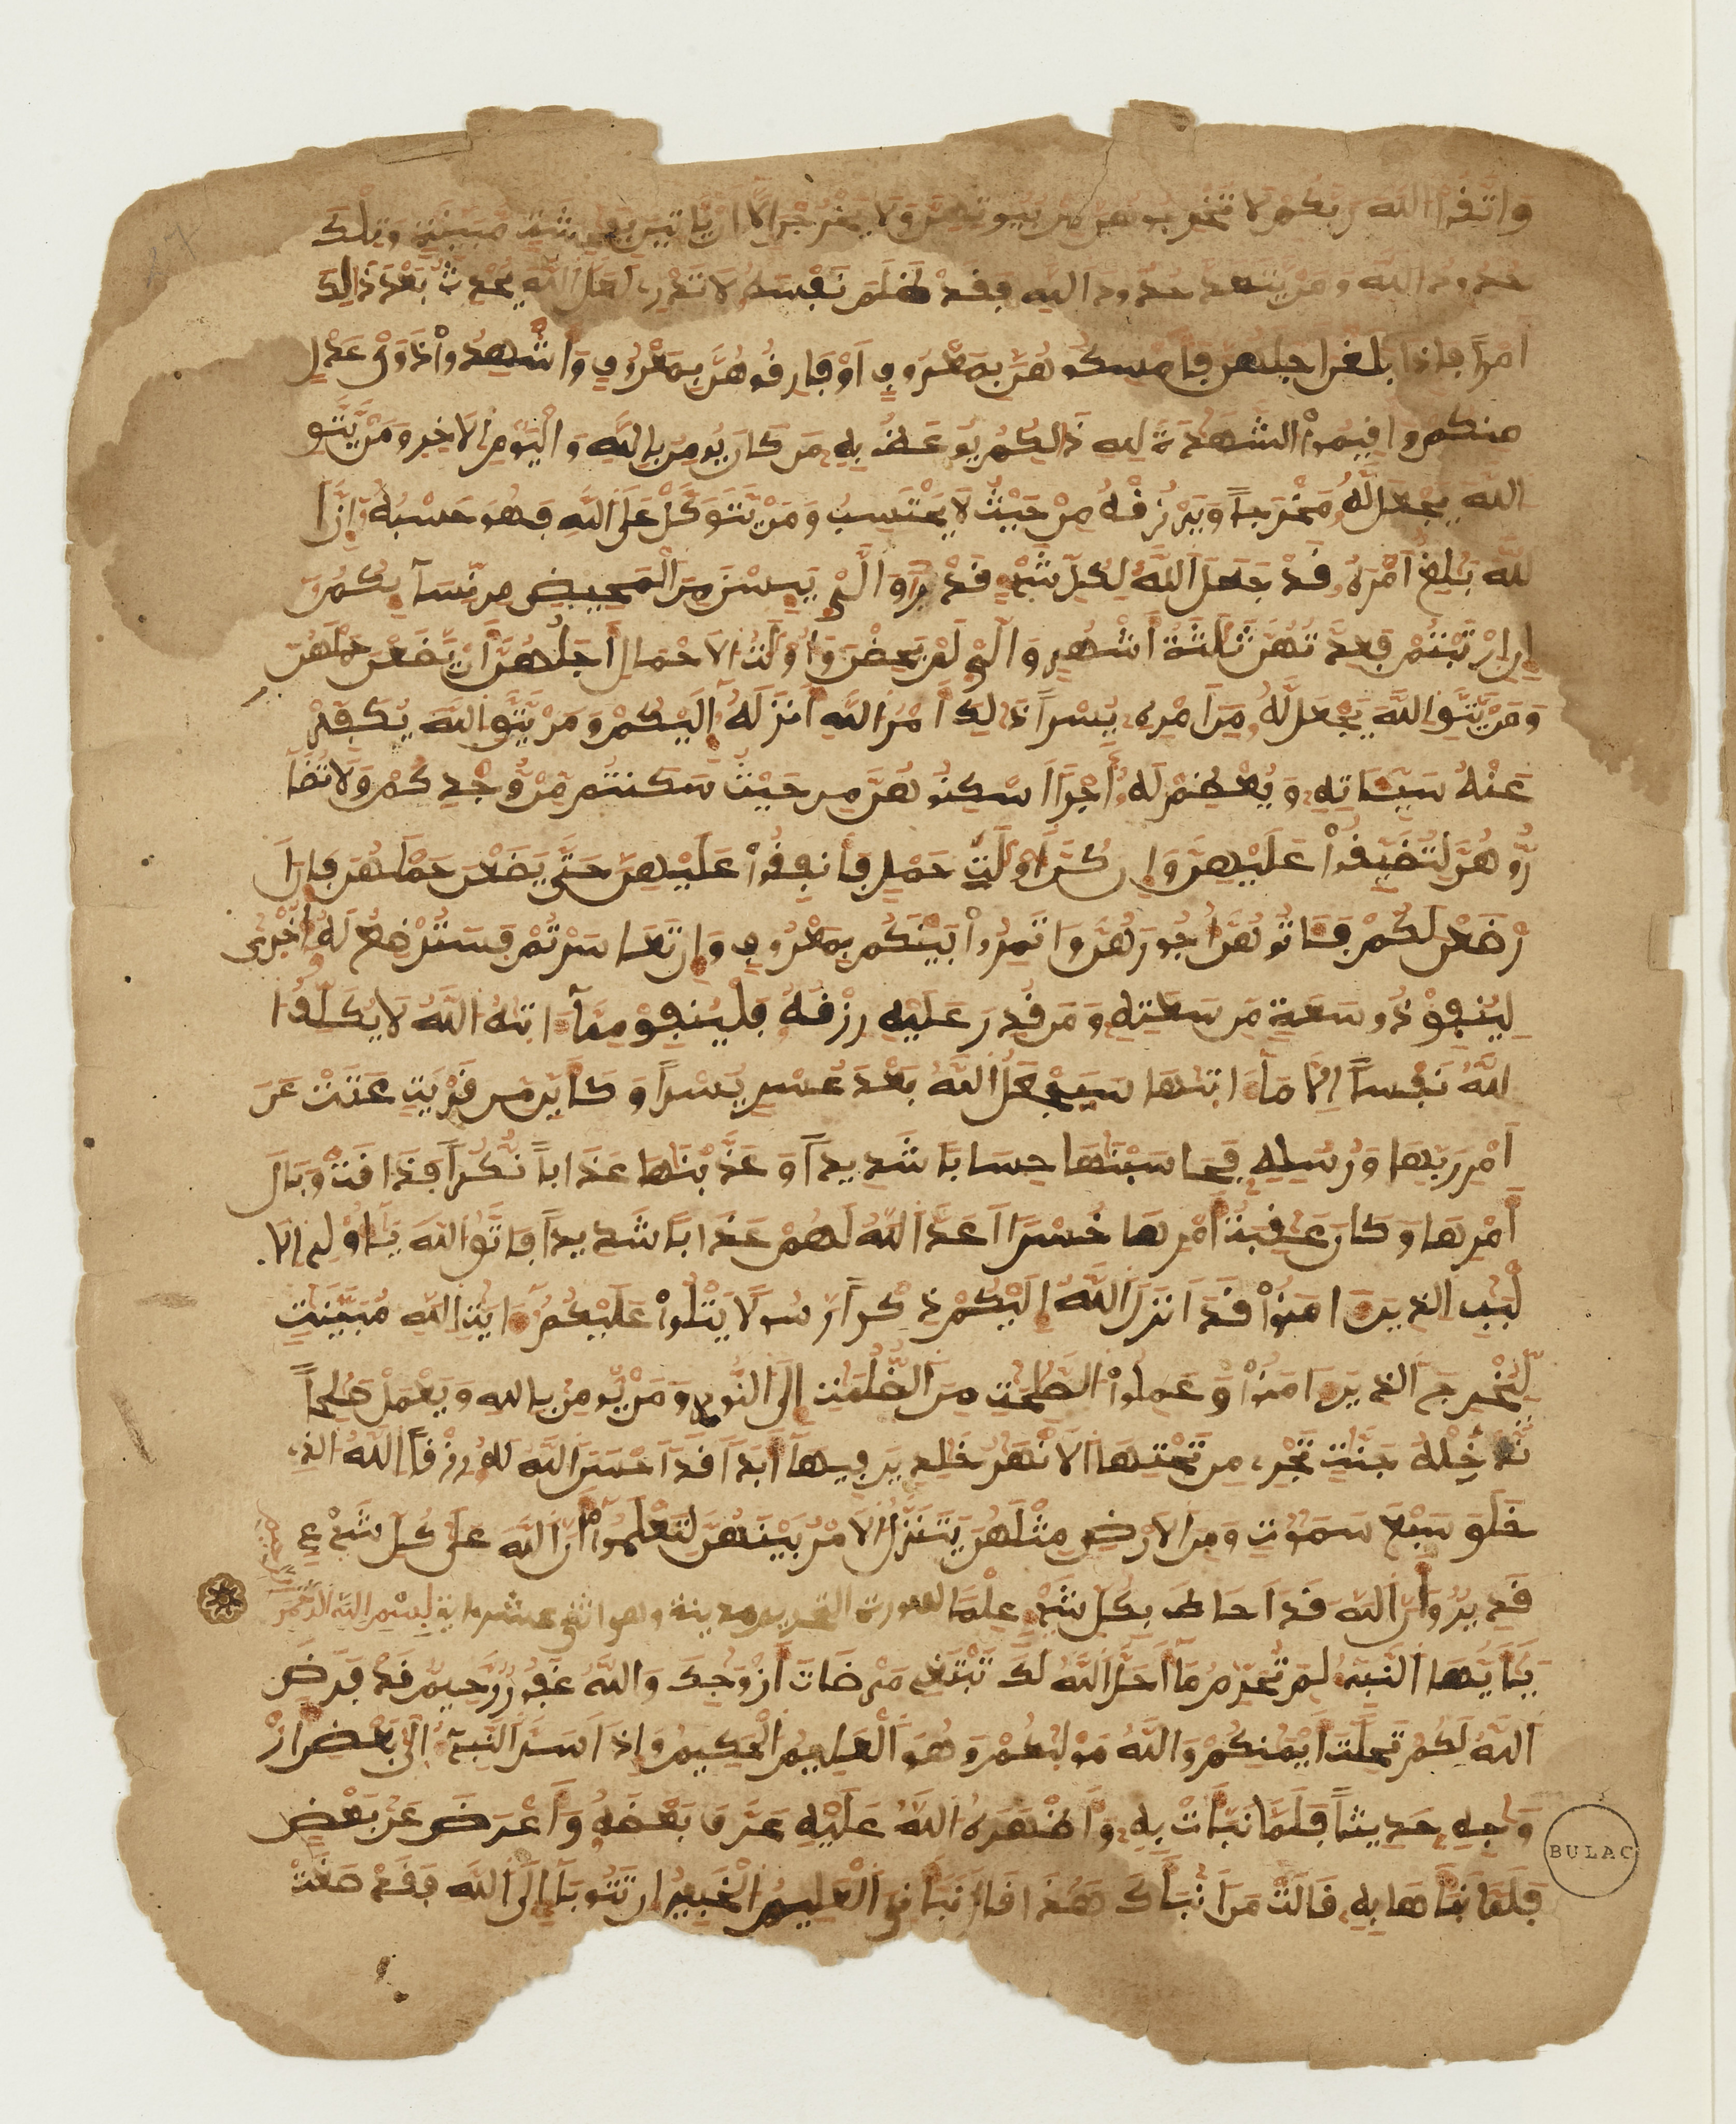 واتقوا الله ربكم لا تخرجوهن من بيوتهن ولا يخرجن إلا أن ياتين بفحشة مبينة وتلك
حدود الله ومن يتعد حدود الله فقد ظلم نفسه لا تدري لعل الله يحدث بعد ذلك
أمرا فإذا بلغن أجلهن فأمسكوهن بمعروف أو فارقوهن بمعروف وأشهدوا ذوي عدل
منكم وأقيموا الشهدة لله ذلكم يوعظ به من كان يومن بالله واليوم الاخر ومن يتق
الله يجعل له مخرجا ويرزقه من حيث لا يحتسب ومن يتوكل على الله فهو حسبه إن ا
لله بلغ أمره قد جعل الله لكل شيء قدرا والي يسن من المحيض من نسآيكم
إن ارتبتم فعدتهن ثلثة أشهر والي لم يحضن وأولت الاحمال أجلهن أن يضعن حملهن
ومن يتق الله يجعل له من أمره يسرا ذلك أمر الله أنزله إليكم ومن يتق الله يكفر
عنه سياته ويعظم له أجرا اسكنوهن من حيث سكنتم من وجدكم ولا تضا
روهن لتضيقوا عليهن وإن كن أولت حمل فأنفقوا عليهن حتى يضعن حملهن فإن ا
رضعن لكم فاتوهن أجورهن واتمروا بينكم بمعروف وإن تعاسرتم فسترضع له أخرى
لينفق ذو سعة من سعته ومن قدر عليه رزقه فلينفق ممآ اتيه الله لا يكلف ا
لله نفسا إلا مآ اتيها سيجعل الله بعد عسر يسرا وكأين من قرية عتت عن
أمر ربها ورسله فحاسبنها حسابا شديدا وعذبنها عذابا نكرا فذاقت وبال
أمرها وكان عقبة أمرها خسرا أعد الله لهم عذابا شديدا فاتقوا الله يأولي الا
لبب الذين امنوا قد أنزل الله إليكم ذكرا رسولا يتلوا عليكم ايت الله مبينت
ليخرج الذين امنوا وعملوا الصلحت من الظلمت إلى النور ومن يومن بالله ويعمل صلحا
ندخله جنت تجري من تحتها الانهر خلدين فيها أبدا قد أحسن الله له رزقا الله الذي
خلق سبع سموت ومن الارض مثلهن يتنزل الامر بينهن لتعلموا أن الله على كل شيء
قدير وأن الله قد أحاط بكل شيء علما سورة التحريم مدينة وهي اثنى عشر اية بسم الله الرحمن
يأيها النبيء لم تحرم ما أحل الله لك تبتغي مرضات أزوجك والله غفور رحيم قد فرض
الله لكم تحلة أيمنكم والله موليكم وهو العليم الحكيم وإذ أسر النبيء إلى بعض از
وجه حديثا فلما نبأت به وأظهره الله عليه عرف بعضه وأعرض عن بعض
فلما نبأها به قالت من أنبأك هذا قال نبأني العليم الخبير إن تتوبا إلى الله فقد صغت
BULAC